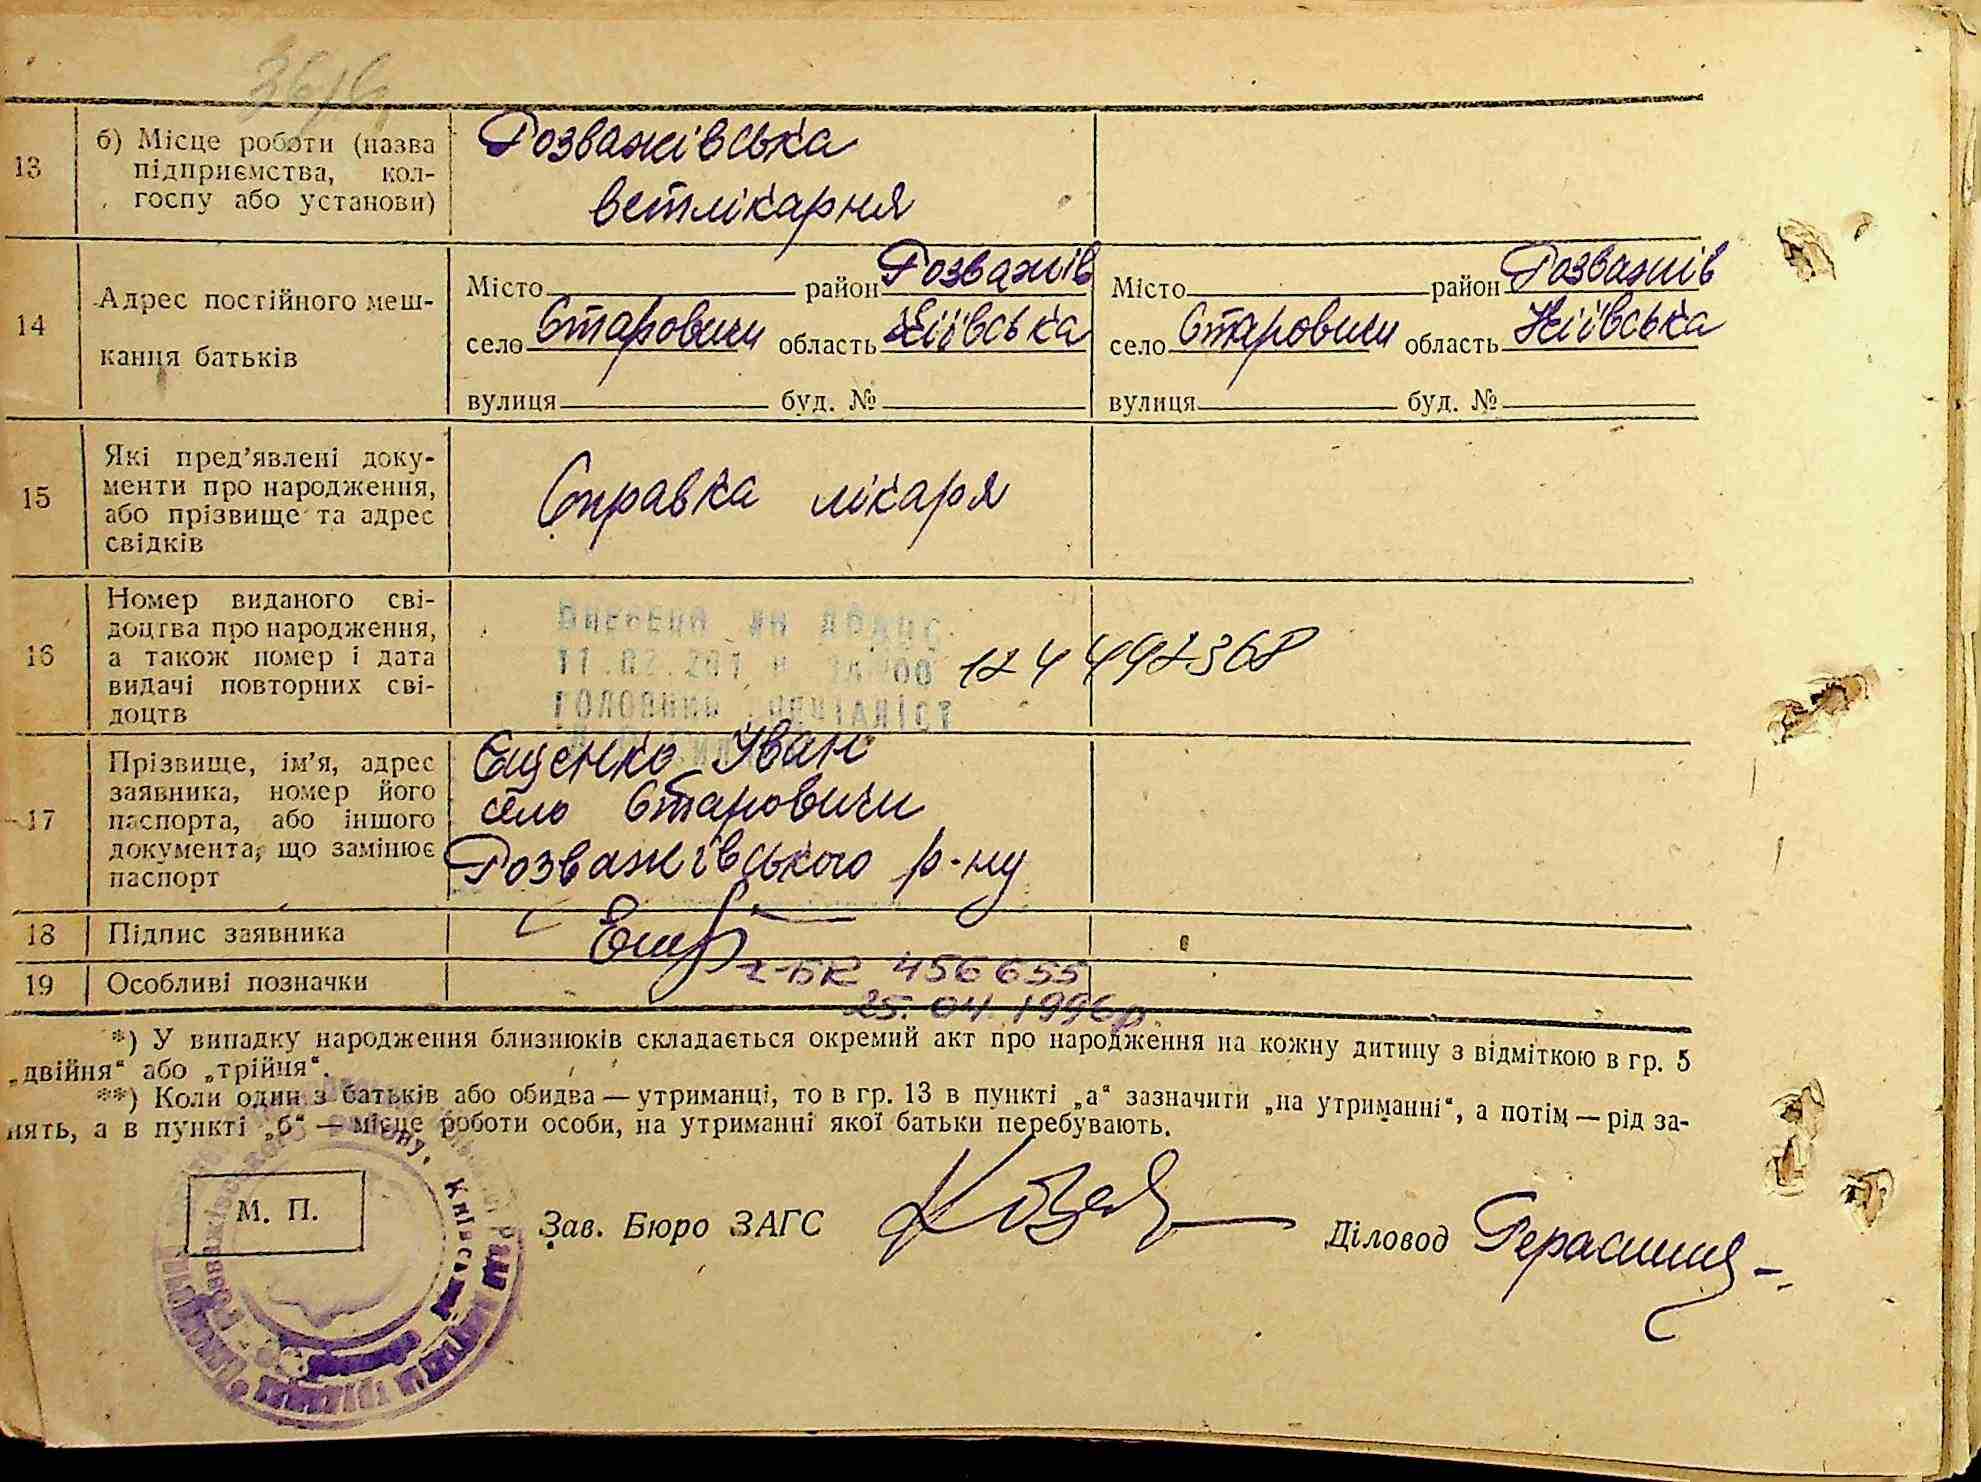 13 б) Місце роботи (назва підприємства, кол- Розважівська
госпу або установи) ветлікарня
14 Адрес постійного меш- Місто район Розважів Місто район Розважів
село Старовичи область Київська село Старовичи область Київська
кання батьків
вулиця буд. № вулиця буд. №
15 Які пред’явлені доку-
менти про народження, Справка лікаря
або прізвище та адрес
свідків
16 Номер виданого сві-
доцтва про народження,
а також номер і дата 124492368
видачі повторних сві-
доцтв
17 Прізвище, ім’я, адрес Єщенко Іван
заявника, номер його село Старовичи
паспорта, або іншого
документа, що замінює Розважівського р-ну
паспорт
18 Підпис заявника
19 Особливі позначки 2-БК 456655
25.04.1996р.
*) У випадку народження близнюків складається окремий акт про народження на кожну дитину з відміткою в гр. 5
„двійня“ або „трійня“.
**) Коли один з батьків або обидва — утриманці, то в гр. 13 в пункті „а“ зазначити „на утриманні“, а потім — рід за-
нять, а в пункті „б“ — місце роботи особи, на утриманні якої батьки перебувають.
М. П. Зав. Бюро ЗАГС Діловод